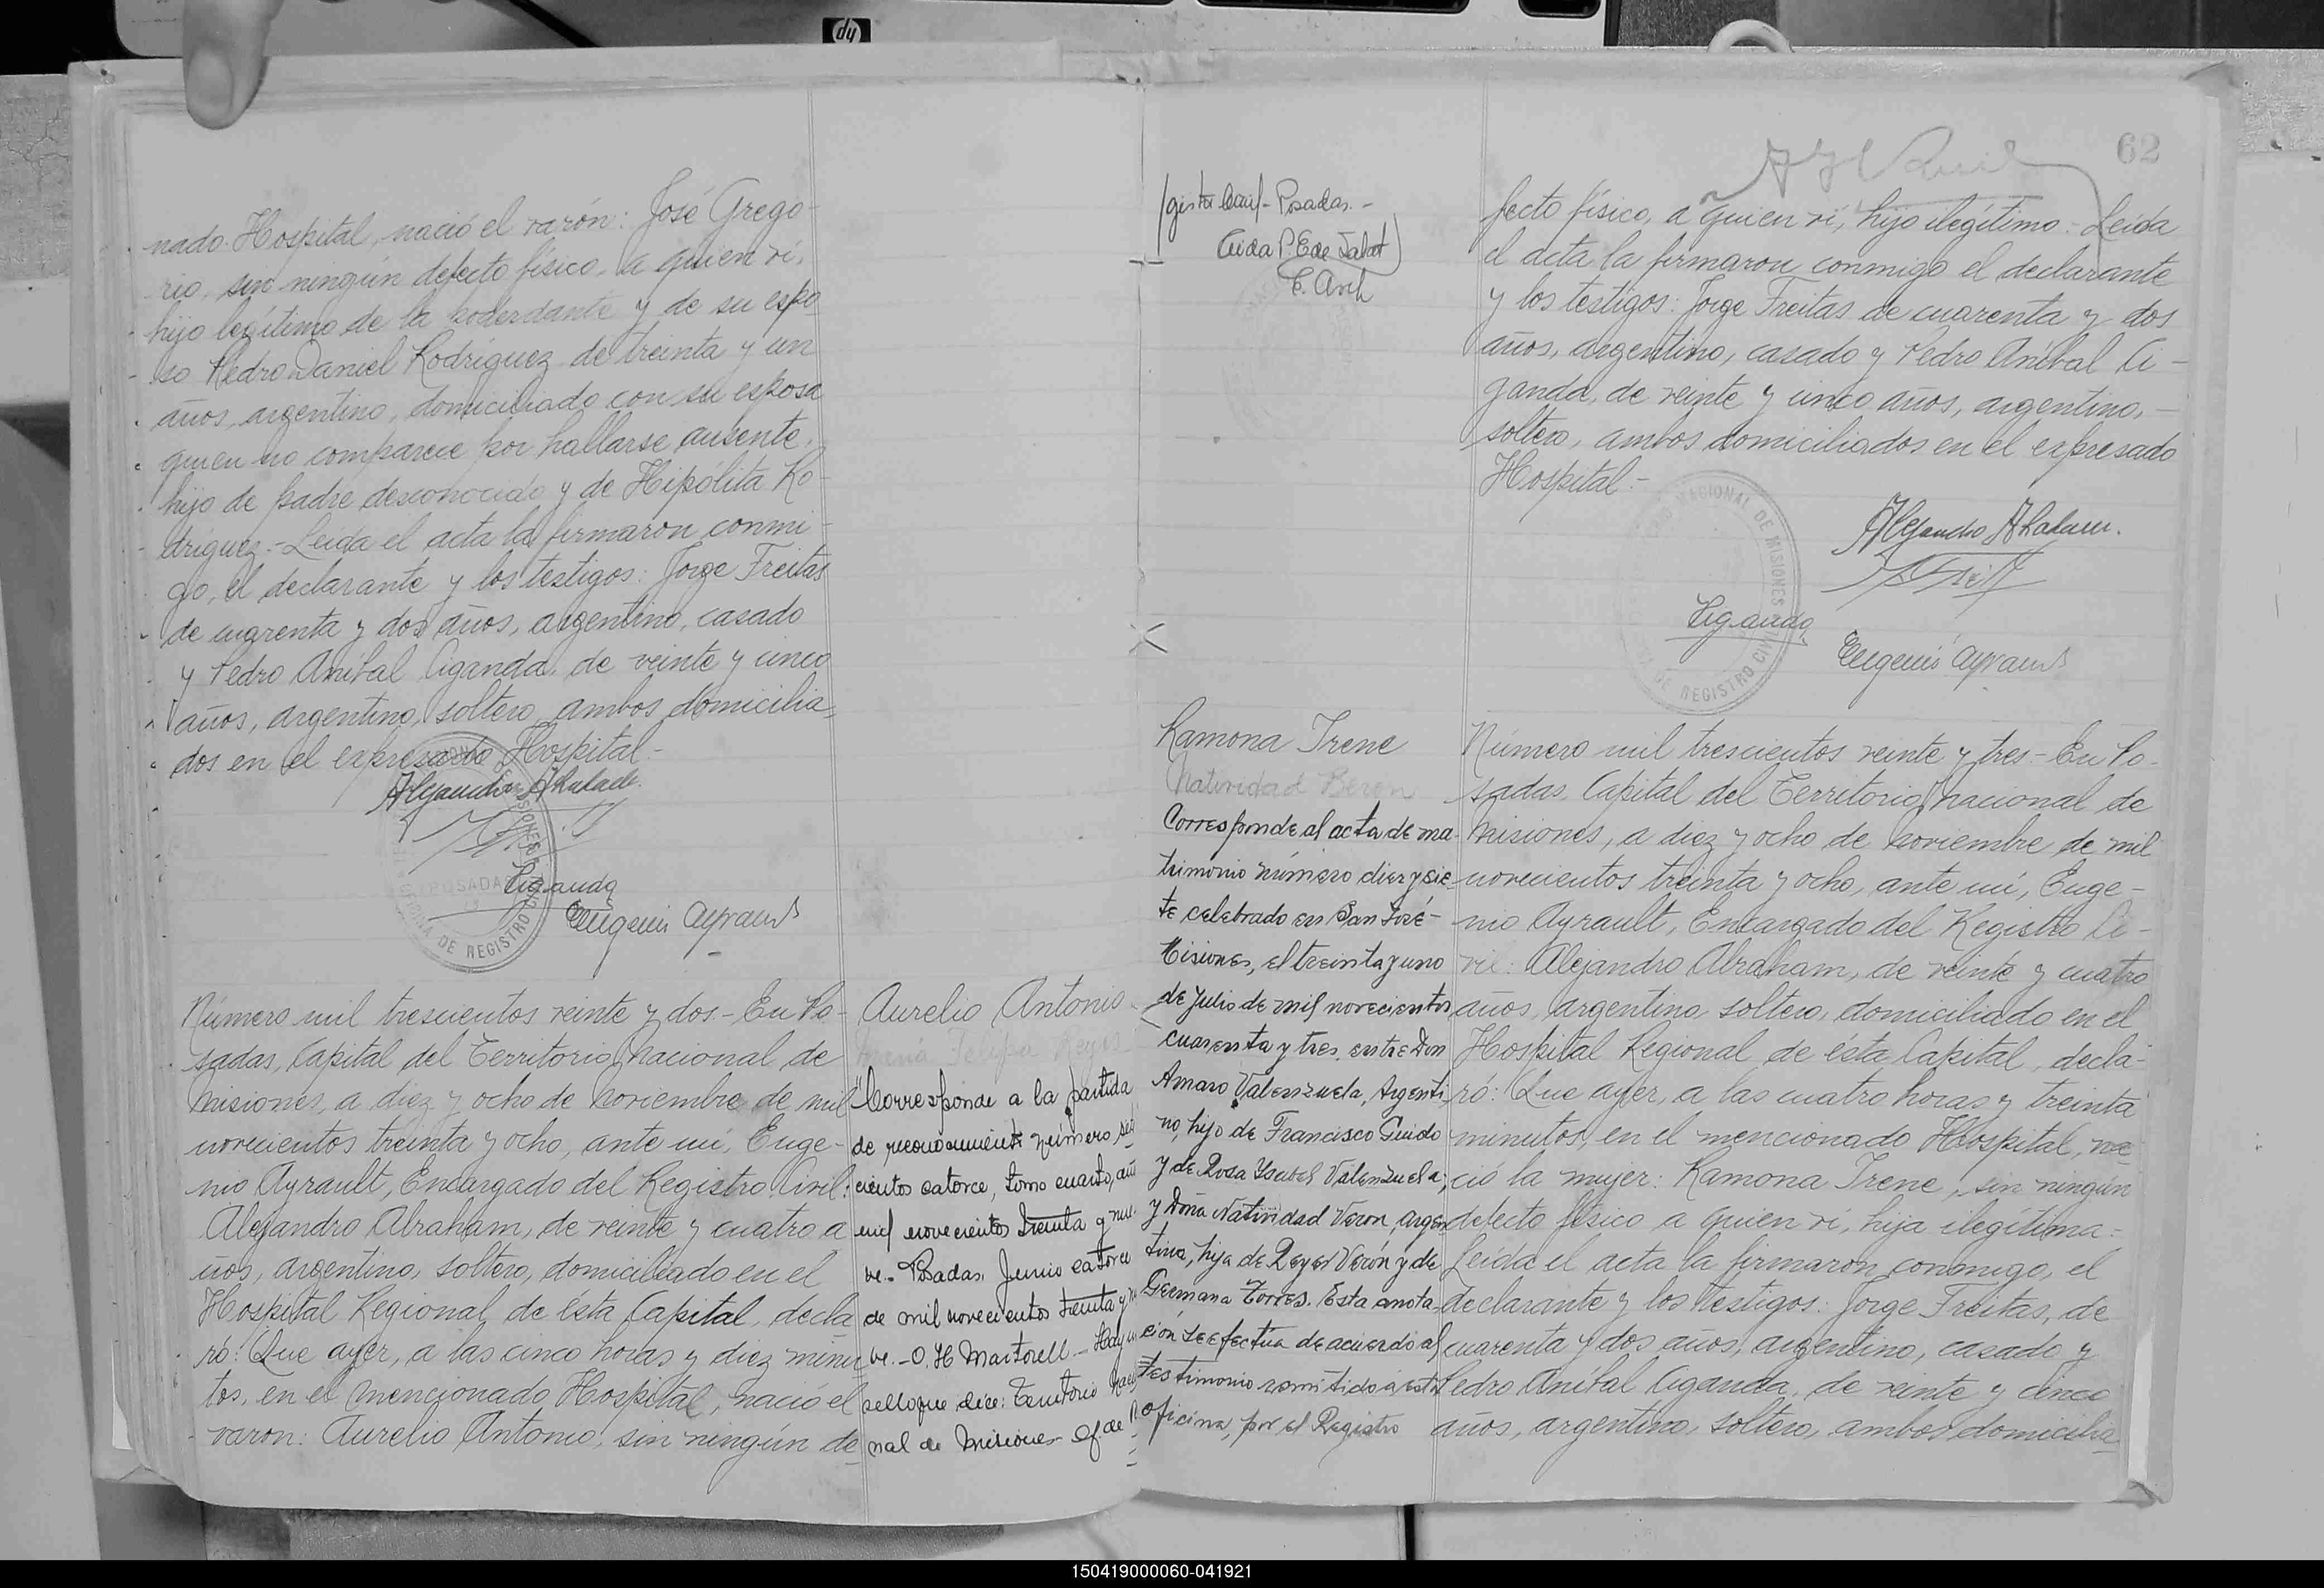 nado Hospital, nació el varón: José Grego-
rio, sin ningún defecto físico, a quien vi,
hijo legítimo de la poderdante y de su espo
so Pedro Daniel Rodríguez, de treinta y un
años, argentino, domiciliado con su esposa
quien no comparece por hallarse ausente,
hijo de padre desconocido y de Hipólita Ro-
dríguez.- Leida el acta la firmaron conmi-
go, el declarante y los testigos: Jorge Freitas
de cuarenta y dos años, argentino, casado
y Pedro Aníbal Ciganda, de veinte y cinco
años, argentino, soltero, ambos domicilia-
dos en el expresado Hospital.-
Alejandro Abraham
Ciganda
Eugenio Ayrault
DE REGISTRO
POSADAS
Número mil trescientos veinte y dos - En Po-
sadas, Capital del Territorio Nacional de
Misiones, a diez y ocho de Noviembre de mil
novecientos treinta y ocho, ante mí, Euge-
nio Ayrault, Encargado del Registro Civil:
Alejandro Abraham, de veinte y cuatro a
ños, argentino, soltero, domiciliado en el
Hospital Regional de ésta Capital, decla
ró: Que ayer, a las cinco horas y diez minu
tos, en el mencionado Hospital, nació el
varon: Aurelio Antonio, sin ningún de
Aurelio Antonio
María Felipa Reyes
"Corresponde a la partida
de reconocimiento número seis
cientos catorce, tomo cuarto, año
mil novecientos treinta y nue
ve.- Posadas, Junio catorce
de mil novecientos treinta y nue
ve.- O. H. Martorell - Hay un
sello que dice: Territorio Nacio
nal de Misiones - Of de R.
gistro Civil - Posadas.-
62
fecto físico, a quien vi, hijo ilegítimo.- Leída
el acta la firmaron conmigo el declarante
y los testigos: Jorge Freitas de cuarenta y dos
años, argentino, casado y Pedro Aníbal Ci-
ganda, de veinte y cinco años, argentino,-
soltero, ambos domiciliados en el expresado
Hospital.-
NACIONAL DE MISIONES
DE REGISTRO CIVIL
Alejandro Abraham
Ciganda
Eugenio Ayrault
Ramona Irene
Natividad Beron
Corresponde al acta de ma-
trimonio número diez y sie-
te celebrado en San José-
Misiones, el treinta y uno
de Julio de mil novecientos
cuarenta y tres, entre Don
Amaro Valenzuela, Argenti
no, hijo de Francisco Guido
y de Rosa Ysabel Valenzuela;
y Doña Natividad Veron, argen
tina, hija de Reyes Verón y de
Germana Torres. Esta anota-
ción se efectúa de acuerdo al
testimonio remitido a esta
oficina, por el Registro
Número mil trescientos veinte y tres - En Po-
sadas, Capital del Territorio Nacional de
Misiones, a diez y ocho de Noviembre de mil
novecientos treinta y ocho, ante mí, Euge-
nio Ayrault, Encargado del Registro Ci-
vil: Alejandro Abraham, de veinte y cuatro
años, argentino, soltero, domiciliado en el
Hospital Regional de ésta Capital, decla-
ró: Que ayer, a las cuatro horas y treinta
minutos, en el mencionado Hospital, na
ció la mujer: Ramona Irene, sin ningún
defecto físico a quien vi, hija ilegítima-
Leída el acta la firmaron conmigo, el
declarante y los testigos: Jorge Freitas, de
cuarenta y dos años, argentino, casado y
Pedro Aníbal Ciganda, de veinte y cinco
años, argentino, soltero, ambos domicilia
150419000060-041921